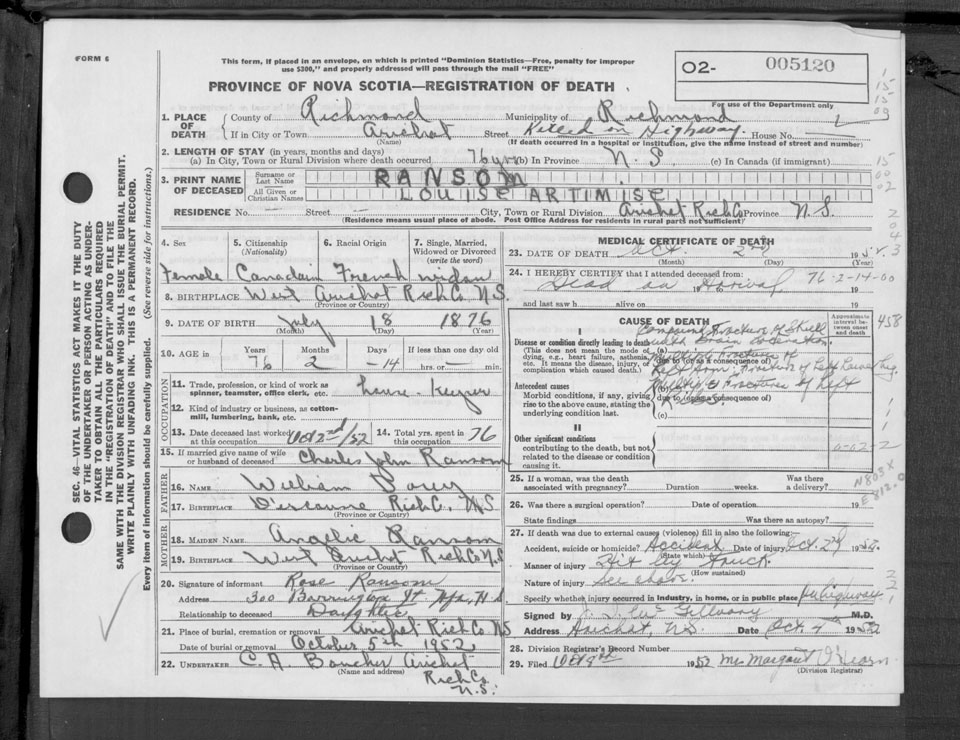 FORM 6
This form, if placed in an envelope, on which is printed "Dominion Statistics—Free, penalty for improper
use $300," and properly addressed will pass through the mail "FREE"
PROVINCE OF NOVA SCOTIA—REGISTRATION OF DEATH
02- 005120
For use of the Department only
15
15
09
1. PLACE OF DEATH
County of Richmond Municipality of Richmond
If in City or Town Arichat Street Killed on Highway House No.
(Name) (If death occurred in a hospital or institution, give the name instead of street and number)
2. LENGTH OF STAY (in years, months and days)
(a) In City, Town or Rural Division where death occurred 76 yrs (b) In Province N.S (c) In Canada (if immigrant)
15
00
02
3. PRINT NAME OF DECEASED
Surname or Last Name RANSOM
All Given or Christian Names LOUISE ARTIMISE
RESIDENCE No. Street City, Town or Rural Division Arichat Rich Co Province N.S.
(Residence means usual place of abode. Post Office Address for residents in rural parts not sufficient)
4. Sex
5. Citizenship (Nationality)
6. Racial Origin
7. Single, Married, Widowed or Divorced (write the word)
Female Canadain French widow
8. BIRTHPLACE West Arichat Rich Co. N.S.
(Province or Country)
9. DATE OF BIRTH July 18 1876
(Month) (Day) (Year)
10. AGE in Years Months Days If less than one day old
76 2 14 hrs. or min.
OCCUPATION
11. Trade, profession, or kind of work as
spinner, teamster, office clerk, etc. house-keeper
12. Kind of industry or business, as cotton-
mill, lumbering, bank, etc.
13. Date deceased last worked at this occupation Oct 2nd/52 14. Total yrs. spent in this occupation 76
15. If married give name of wife or husband of deceased Charles John Ransom
FATHER
16. NAME William
17. BIRTHPLACE D'escousse Rich C. N.S
(Province or Country)
MOTHER
18. MAIDEN NAME Angelic Ransom
19. BIRTHPLACE West Arichat Rich Co N.S
(Province or Country)
20. Signature of informant Rose Ransom
Address 300 Barrington St Hfx, N.S
Relationship to deceased Daughter
21. Place of burial, cremation or removal Arichat Rich Co NS
Date of burial or removal October 5th 1952
22. UNDERTAKER C. A. Boucher Arichat
(Name and address) Rich Co
N.S.
MEDICAL CERTIFICATE OF DEATH
23. DATE OF DEATH Oct. 2nd 195
(Month) (Day) (Year)
24. I HEREBY CERTIFY that I attended deceased from:
Dead on Arrival 19 19
76-2-14-00
and last saw h alive on 19
CAUSE OF DEATH
Approximate interval between onset and death
458
I
Disease or condition directly leading to death
(This does not mean the mode of
dying, e.g., heart failure, asthenia,
etc. It means the disease, injury, or
complication which caused death.)
Compound fracture of Skull
with Brain
(a)
due to (or as a consequence of)
Multiple fractures of
Left Arm
Antecedent causes
Morbid conditions, if any, giving
rise to the above cause, stating the
underlying condition last.
(b)
due to (or as a consequence of)
Fractures of left
(c)
II
Other significant conditions
contributing to the death, but not
related to the disease or condition
causing it.
25. If a woman, was the death associated with pregnancy? Duration weeks. Was there a delivery?
N803X
E812.0
26. Was there a surgical operation? Date of operation 19
State findings Was there an autopsy?
27. If death was due to external causes (violence) fill in also the following:
Accident, suicide or homicide? Accident Date of injury Oct. 2nd 1952
(State which)
Manner of injury Hit by Truck
(How sustained)
Nature of injury See above
Specify whether injury occurred in industry, in home, or in public place
Signed by M.D.
Address Arichat, N.S. Date Oct. 4th 1952
28. Division Registrar's Record Number
29. Filed Oct 9th 1952 Mrs Margaret O'Hearn
(Division Registrar)
SEC. 46—VITAL STATISTICS ACT MAKES IT THE DUTY
OF THE UNDERTAKER OR PERSON ACTING AS UNDER-
TAKER TO OBTAIN ALL THE PARTICULARS REQUIRED
IN THE "REGISTRATION OF DEATH" AND TO FILE THE
SAME WITH THE DIVISION REGISTRAR WHO SHALL ISSUE THE BURIAL PERMIT.
WRITE PLAINLY WITH UNFADING INK. THIS IS A PERMANENT RECORD.
Every item of information should be carefully supplied. (See reverse side for instructions.)